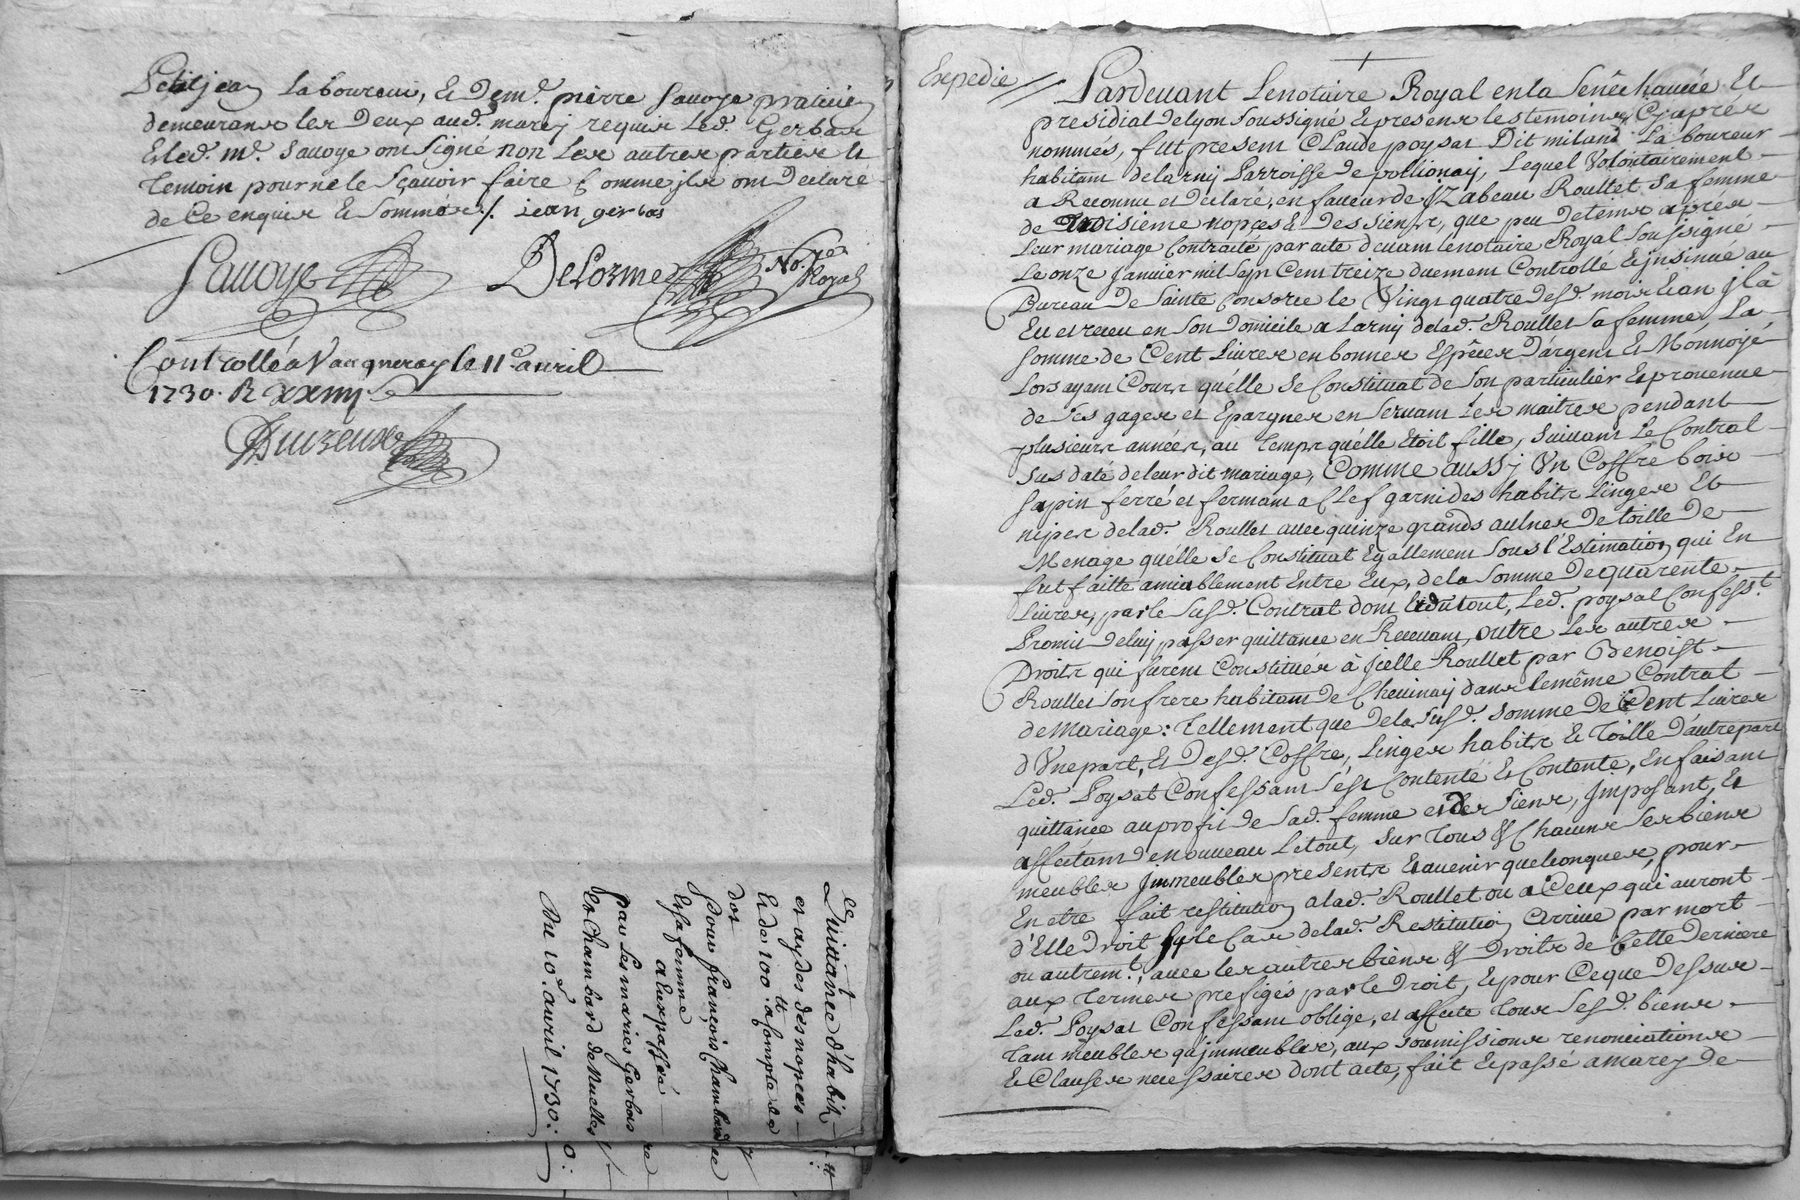 Petitjean Laboureur, & Dem.e pierre Sauoye praticien
demeurans les Deux aud.t marcy requis Led. Gerbas
& led. m.e Sauoye ont Signé non Les autres parties &
Temoin pour ne le Sçauoir faire Comme jls ont Declaré
de Ce enquis & Sommés ./. jean gerbas
Sauoye Delorme No.re Royal
Controllé a Vaugneray le 11.e auril
1730. R xxiiij s
Expedié
Pardeuant Lenotaire Royal en la Senêchaucée Et
presidial delyon soussigné & presens les temoins Cyaprés
nommés, fut present Claude poysat Dit miland Laboureur
habitant delarny Parroisse de pollionay, Lequel Volontairement
a Reconnu et declaré, en faueur de YZabeau Roullet Sa femme
de Troisieme nopçes & Des siens, que peu detems aprés
Leur mariage Contracté par acte deuant lenotaire Royal soussigné
Le onze Januier mil sept Cent treize duement Controllé & jnsinué au
Bureau De Sainte Consorce le Vingt quatre desd. mois & an jl à
Eu et receu en son Domicile a Larny delad. Roullet sa femme La
somme de Cent Liures en bonnes Espêces D'argent & Monnoyé
Lors ayant Cours qu'elle se Constituat de son particulier & prouenue
de ses gages et Epargnes en seruant Les maitres pendant
plusieurs années, au Temps qu'elle Etoit fille, suiuant Le Contrat
sus daté de leur dit mariage, Comme aussi Un Coffre bois
sapin ferré et fermant a Clef garni des habits Linges Et
nipes delad. Roullet auec quinze grands aulnes De toille de
Menage quelle se Constituat Egallement sous l'Estimation qui En
fut faitte amiablement Entre Eux, de la somme De quarente
Liures, par le susd. Contrat dont & du tout, Led. poysat Confess.t
Promit deluy passer quittance en Receuant, outre Les autres
Droits qui furent Constitués à jcelle Roullet par Benoist
Roullet son frere habitant de Cheuinay dans le même Contrat
de Mariage: Tellement que de la susd. somme de Cent Liures
d'Une part, Et Desd. Coffre, Linges habits & Toille D'autre part
Led. Poysat Confessant s'est Contenté & Contente, En faisant
quittance au profit de sad. femme et des siens, jmposant, Et
affectant de nouueau Le tout, sur Tous & Chacuns ses biens
meubles jmmeubles presents & auenir quelconques, pour
En etre fait restitution a lad. Roullet ou a Ceux qui auront
d'Elle droit sy le Cas de lad. Restitution Arriue par mort
ou autrem.t, auec les autres biens & Droits de Cette Derniere
aux Termes prefigés par le Droit, & pour Ce que Dessus
Led. Poysat Confessant oblige, et affecte Tous sesd. biens
Tant meubles qu'jmmeubles, aux soumissions renonciations
& Clauses necessaires dont acte, fait & passé a marcy de
Quittance d'habits
et aydes des nopces
& de 100.tt a Compte de
dot
pour françois Chambard
& sa femme
a Eux passée
par Les mariés Gerbas
& Chambard de Nuelles
Du 10.e auril 1730: